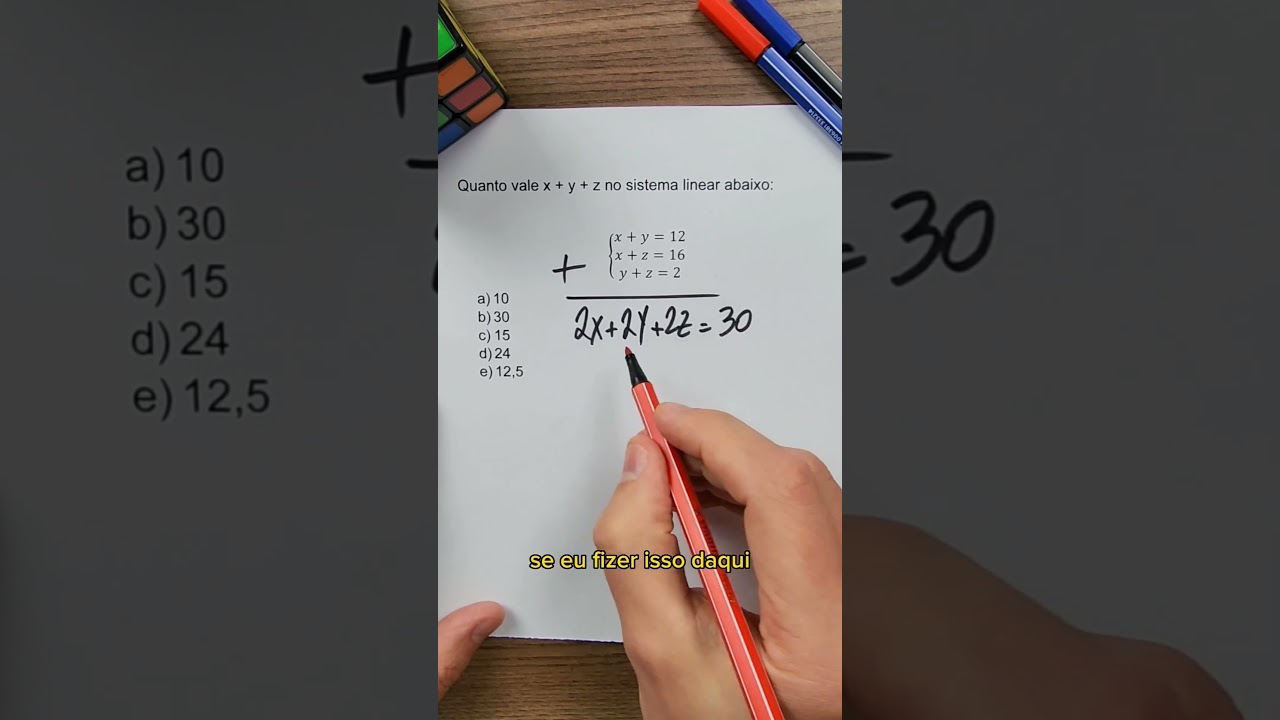 Quanto vale x + y + z no sistema linear abaixo:
x + y = 12
x + z = 16
y + z = 2
+
2x+2y+2z = 30
a) 10
b) 30
c) 15
d) 24
e) 12,5
se eu fizer isso daqui
+
a) 10
b) 30
c) 15
d) 24
e) 12,5
= 30